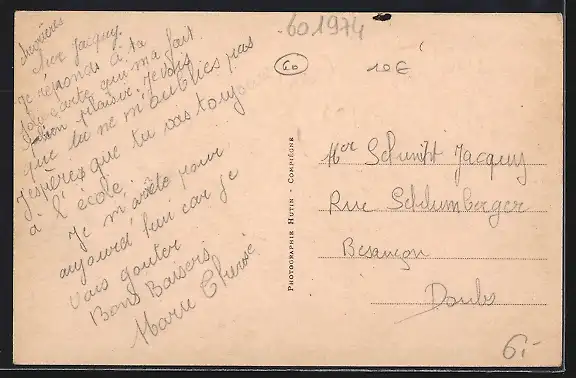 Cher Jacquy,
Je réponds à ta
jolie carte qui m'a fait
bien plaisir. Je vois
que tu ne m'oublies pas
J'espère que tu vas toujours
à l'école.
Je m'arrête pour
aujourd'hui car je
vais gouter
Bons Baisers
Marie Therese
601974
60
10€
PHOTOGRAPHIE HUTIN - COMPIÈGNE
Mer Schmitt Jacquy
Rue Schlumberger
Besançon
Doubs
6.-